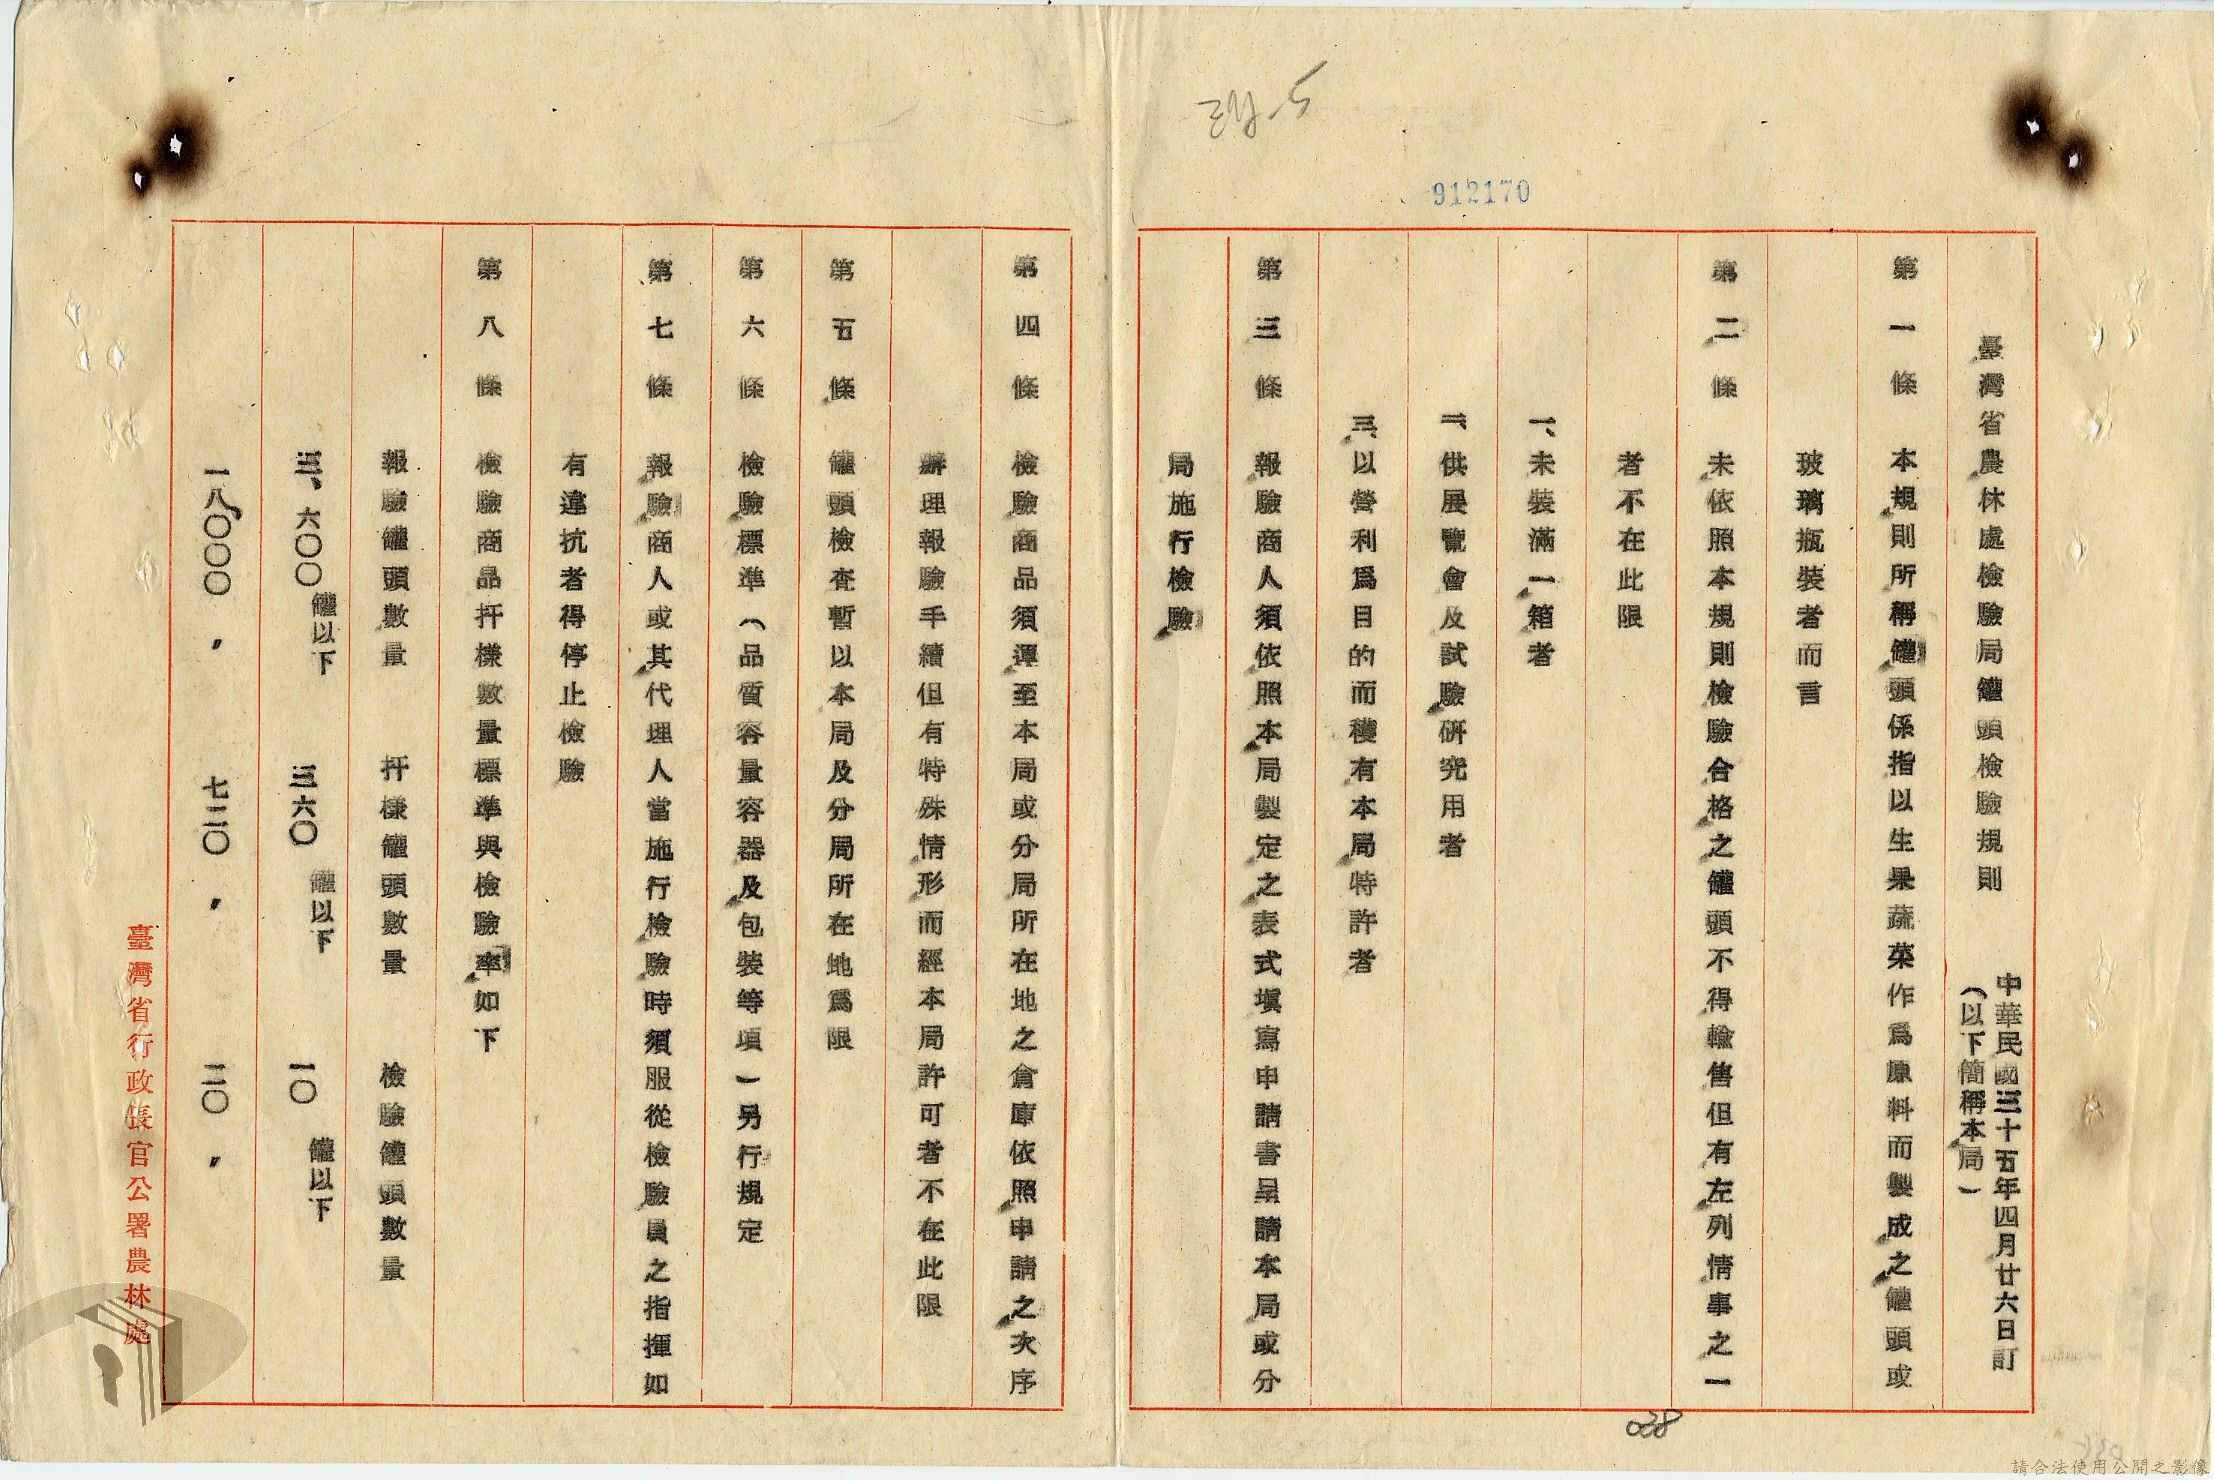 912170
臺灣省農林處檢驗局罐頭檢驗規則
中華民國三十五年四月廿六日訂
（以下簡稱本局）
第一條 本規則所稱罐頭係指以生果蔬菜作爲原料而製成之罐頭或
玻璃瓶裝者而言
第二條 未依照本規則檢驗合格之罐頭不得輸售但有左列情事之一
者不在此限
一、未裝滿一箱者
二、供展覽會及試驗研究用者
三、以營利爲目的而穫有本局特許者
第三條 報驗商人須依照本局製定之表式塡寫申請書呈請本局或分
局施行檢驗
第四條 檢驗商品須運至本局或分局所在地之倉庫依照申請之次序
辦理報驗手續但有特殊情形而經本局許可者不在此限
第五條 罐頭檢查暫以本局及分局所在地爲限
第六條 檢驗標準（品質容量容器及包裝等項）另行規定
第七條 報驗商人或其代理人當施行檢驗時須服從檢驗員之指揮如
有違抗者得停止檢驗
第八條 檢驗商品扦樣數量標準與檢驗率如下
報驗罐頭數量 扦樣罐頭數量 檢驗罐頭數量
三、六〇〇罐以下 三六〇罐以下 一〇罐以下
一八〇〇〇〃 七二〇〃 二〇〃
臺灣省行政長官公署農林處
038
請合法使用公開之影像